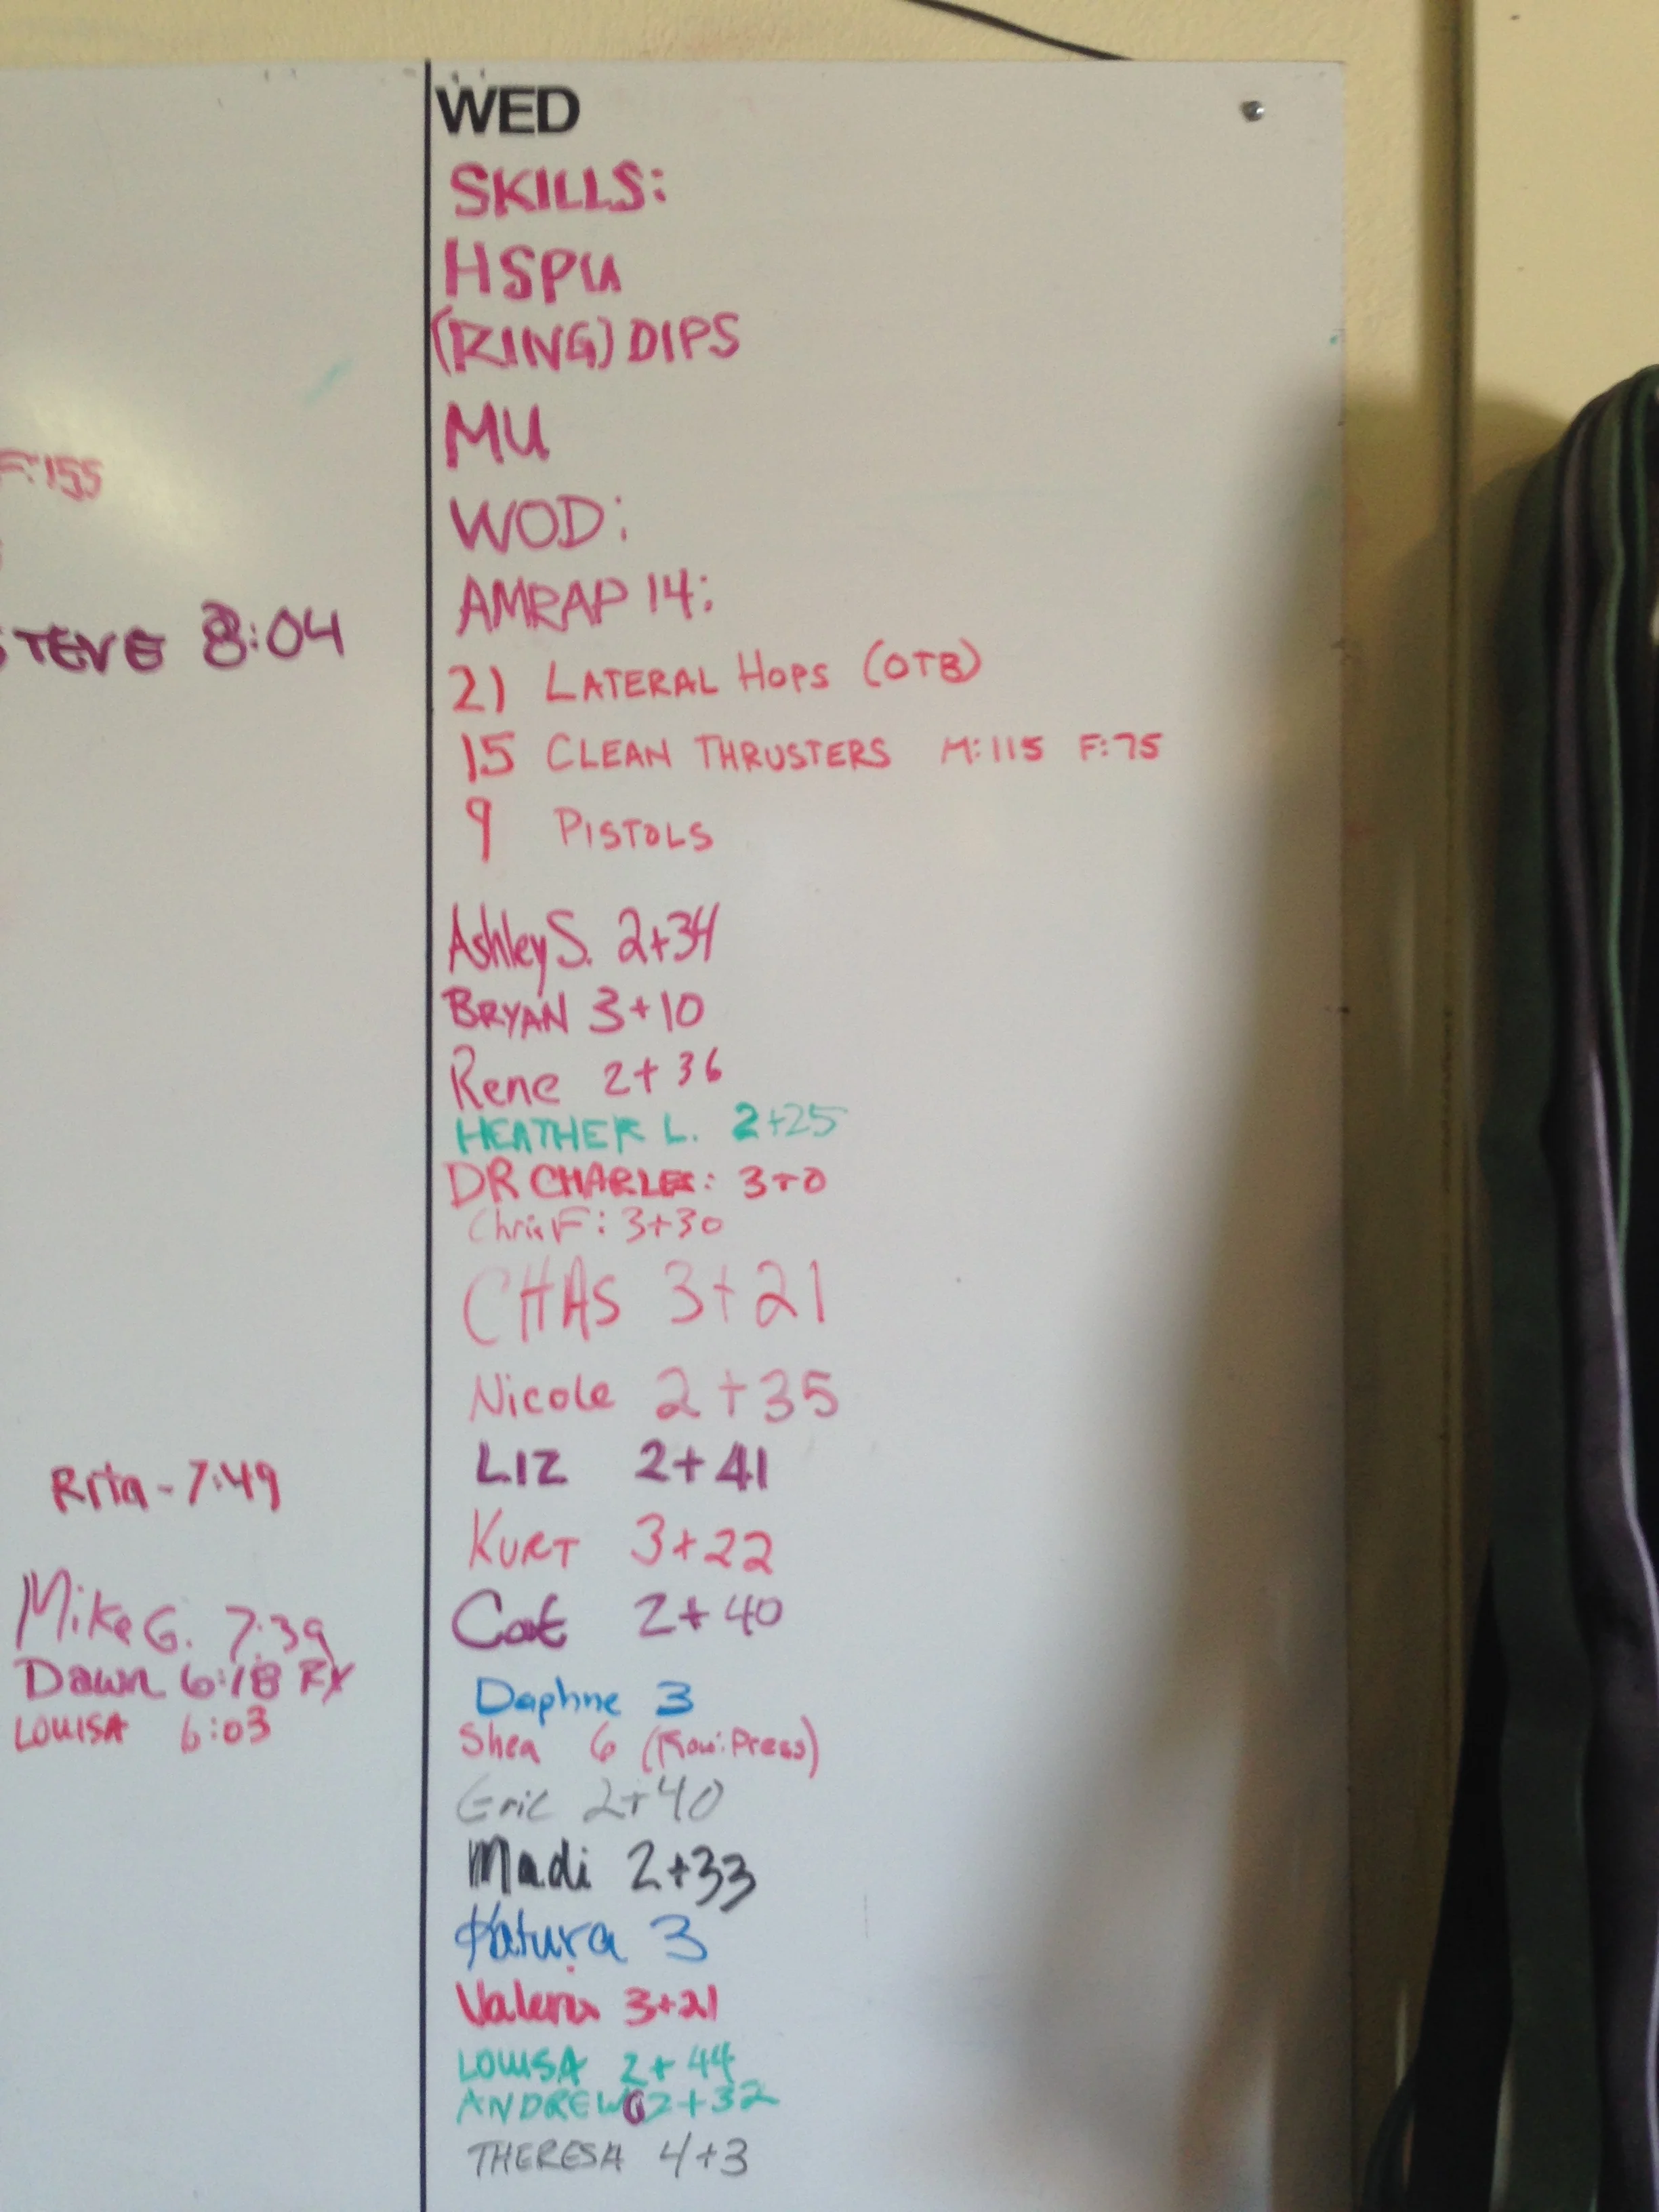 F:155
STEVE 8:04
Rita - 7:49
Mike G. 7:39
Dawn 6:18 RX
LOUISA 6:03
WED
SKILLS:
HSPU
(RING) DIPS
MU
WOD:
AMRAP 14:
21 LATERAL HOPS (OTB)
15 CLEAN THRUSTERS M:115 F:75
9 PISTOLS
Ashley S. 2+34
BRYAN 3+10
Rene 2+36
HEATHER L. 2+25
DR CHARLES: 3+0
Chris F: 3+30
CHAS 3+21
Nicole 2+35
LIZ 2+41
KURT 3+22
Cat 2+40
Daphne 3
Shea 6 (Row:Press)
Eric 2+40
Madi 2+33
Katura 3
Valerie 3+21
LOUISA 2+44
ANDREW G 2+32
THERESA 4+3